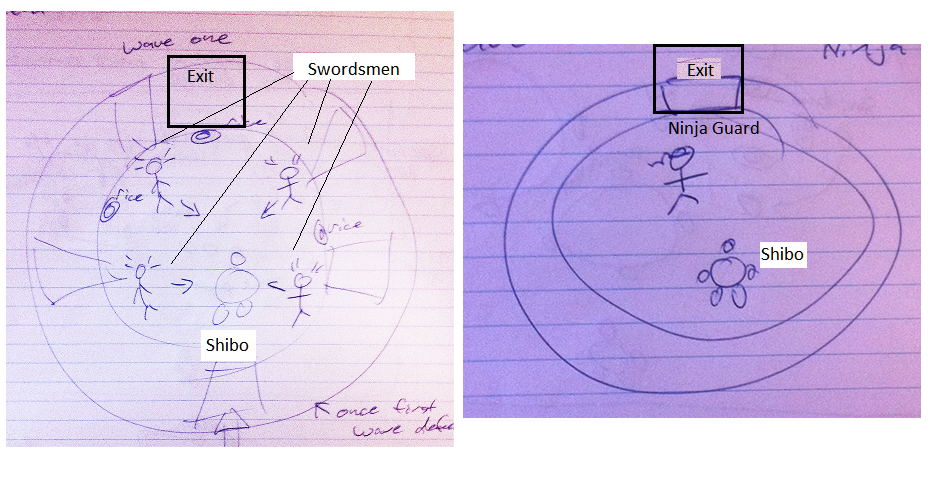 wave one
Exit
Swordsmen
rice
rice
rice
Shibo
once first
wave
Ninja
Exit
Ninja Guard
Shibo